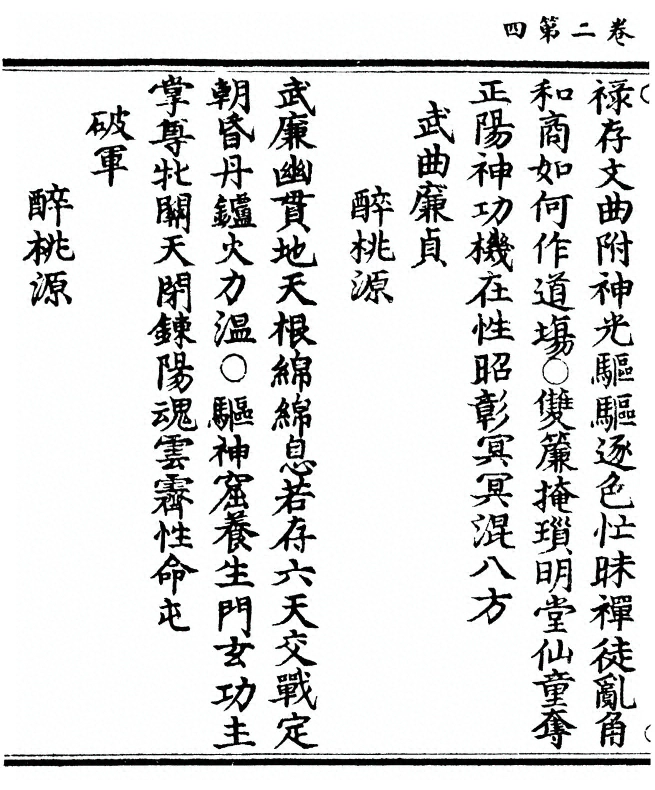 卷二第四
祿存文曲附神光驅驅逐色忙昧禪徒亂角
和商如何作道塲○雙簾掩瑣明堂仙童奪
正陽神功機在性昭彰冥冥混八方
武曲廉貞
醉桃源
武廉幽貫地天根綿綿息若存六天交戰定
朝昏丹鑪火力溫○驅神窟養生門玄功主
掌尊牝關天閉鍊陽魂雲霽性命屯
破軍
醉桃源